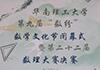 华南理工大学
第九届"数行"
数学文化节闭幕式
暨第二十二届
数理大赛决赛